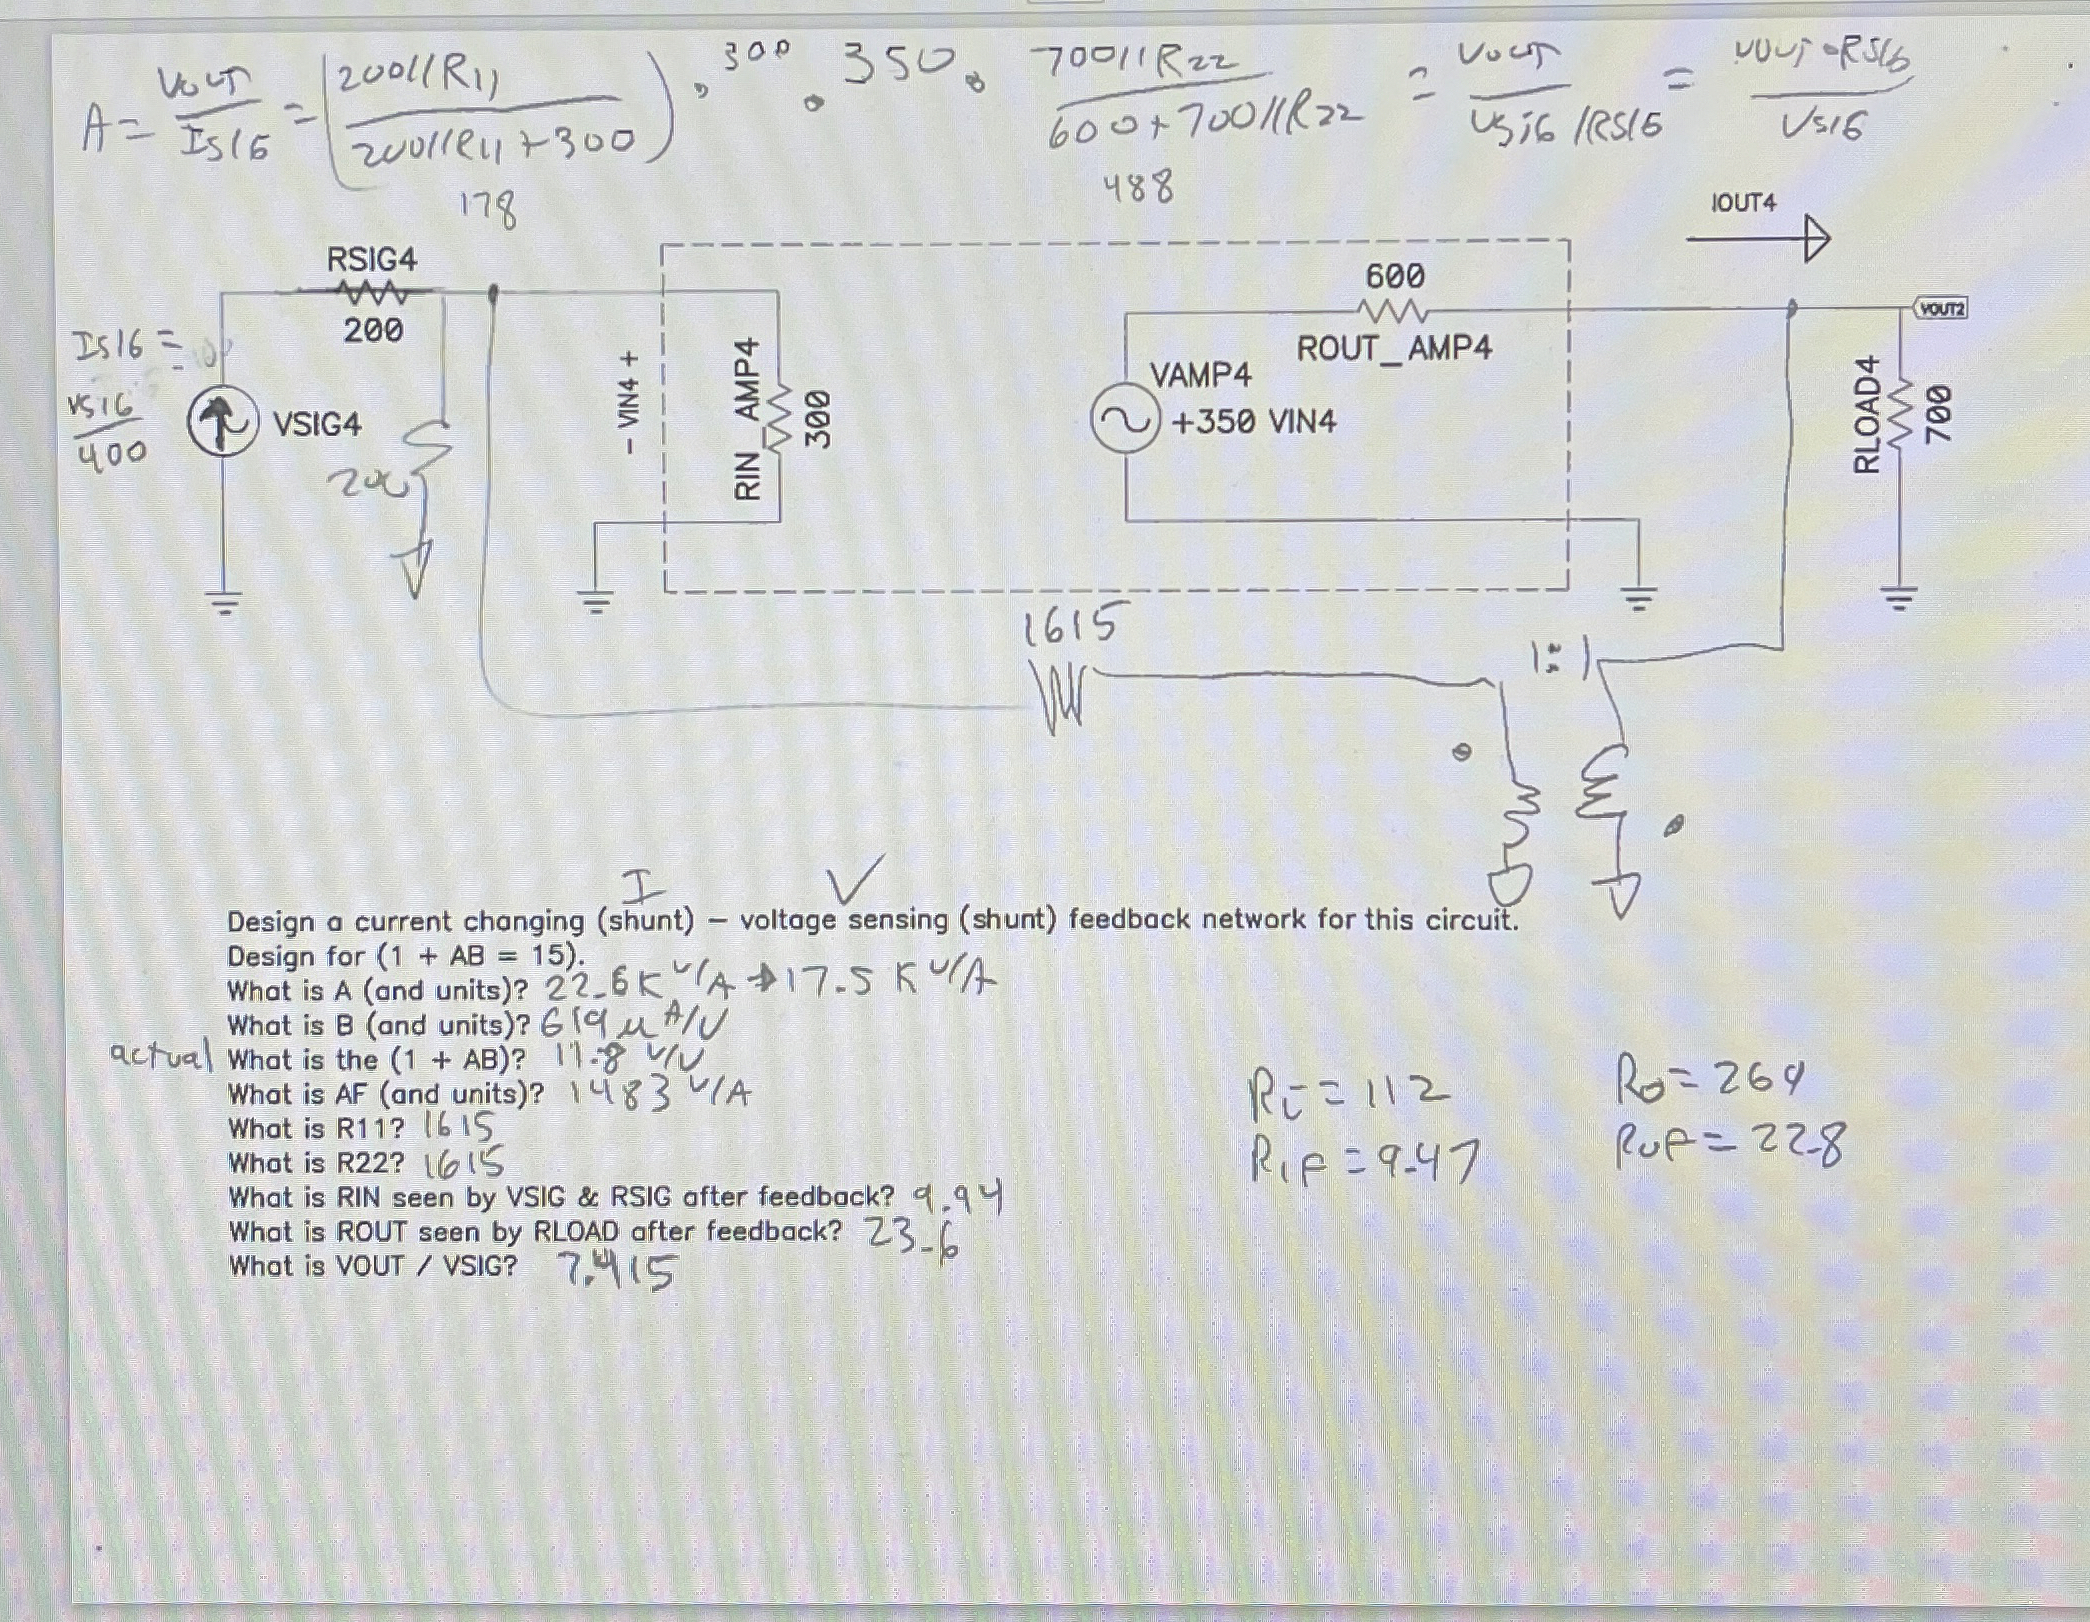 A = VOUT / ISIG = (200//R11 / 200//R11 + 300) . 300 . 350 . 700//R22 / 600 + 700//R22 = VOUT / VSIG/RSIG = VOUT • RSIG / VSIG
178
488
IOUT4
RSIG4
200
600
ROUT_AMP4
VOUT2
ISIG =
VSIG / 400
VSIG4
200
- VIN4 +
RIN_AMP4
300
VAMP4
+350 VIN4
RLOAD4
700
1615
1:1
I V
Design a current changing (shunt) – voltage sensing (shunt) feedback network for this circuit.
Design for (1 + AB = 15).
What is A (and units)? 22.6K V/A → 17.5 K V/A
What is B (and units)? 619 µ A/V
actual What is the (1 + AB)? 11.8 V/V
What is AF (and units)? 1483 V/A
What is R11? 1615
What is R22? 1615
What is RIN seen by VSIG & RSIG after feedback? 9.94
What is ROUT seen by RLOAD after feedback? 23.6
What is VOUT / VSIG? 7.415
Ri = 112
RIF = 9.47
Ro = 269
ROF = 22.8